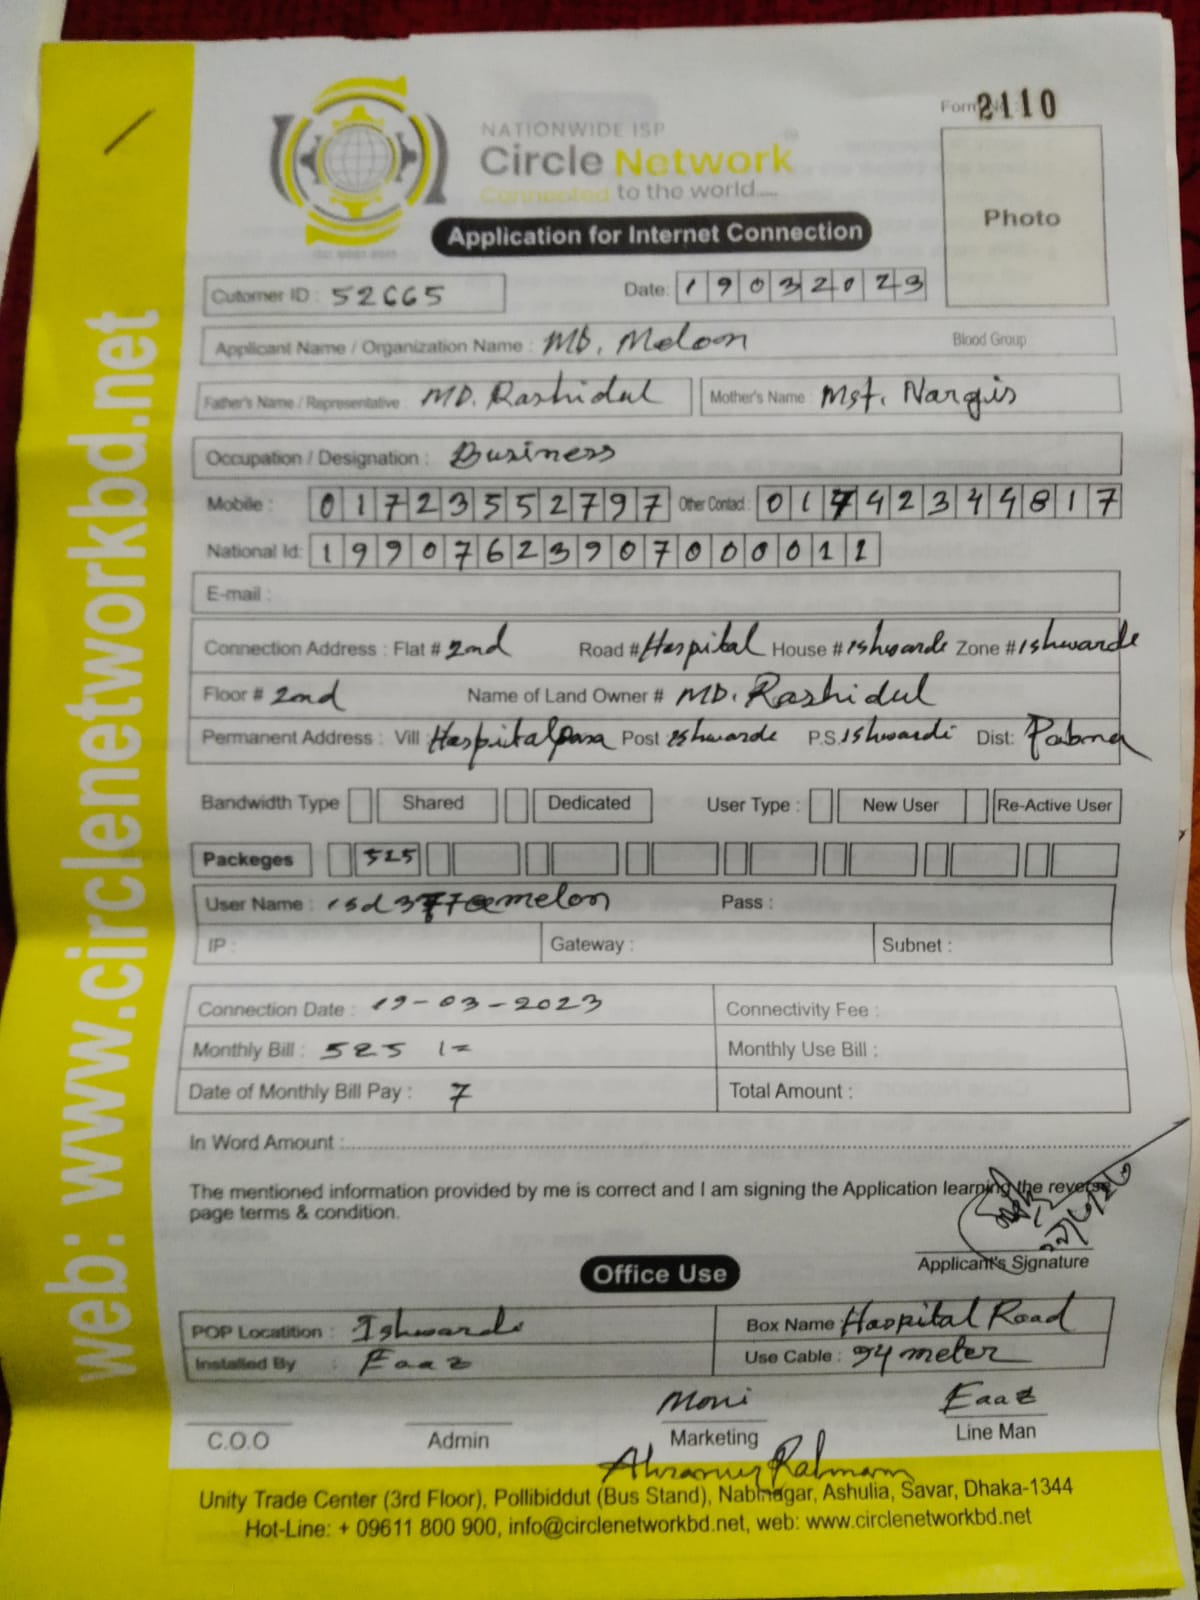 Form No : 2110
NATIONWIDE ISP
Circle Network
Connected to the world....
Application for Internet Connection
Photo
Cutomer ID : 52665
Date: 19032023
Applicant Name / Organization Name : MD. Meloon
Blood Group
Father's Name / Representative : MD. Rashidul
Mother's Name : Mst. Nargis
Occupation / Designation : Business
Mobile : 01723552797 Other Contact : 01742344817
National Id: 19907623907000011
E-mail :
Connection Address : Flat # 2nd Road # Hospital House # Ishwarde Zone # Ishwarde
Floor # 2nd Name of Land Owner # MD. Rashidul
Permanent Address : Vill Hospitalpara Post Ishwarde P.S. Ishwardi Dist: Pabna
Bandwidth Type Shared Dedicated User Type : New User Re-Active User
Packeges 525
User Name : melon Pass :
IP : Gateway : Subnet :
Connection Date : 19-03-2023 Connectivity Fee :
Monthly Bill : 525 /= Monthly Use Bill :
Date of Monthly Bill Pay : 7 Total Amount :
In Word Amount :
The mentioned information provided by me is correct and I am signing the Application learning the reverse
page terms & condition.
Applicant's Signature
Office Use
POP Locatition : Ishwarde Box Name : Hospital Road
Installed By : Eaaz Use Cable : 94 meter
Moni Eaaz
C.O.O Admin Marketing Line Man
Rahman
Unity Trade Center (3rd Floor), Pollibiddut (Bus Stand), Nabinagar, Ashulia, Savar, Dhaka-1344
Hot-Line: + 09611 800 900, info@circlenetworkbd.net, web: www.circlenetworkbd.net
web: www.circlenetworkbd.net